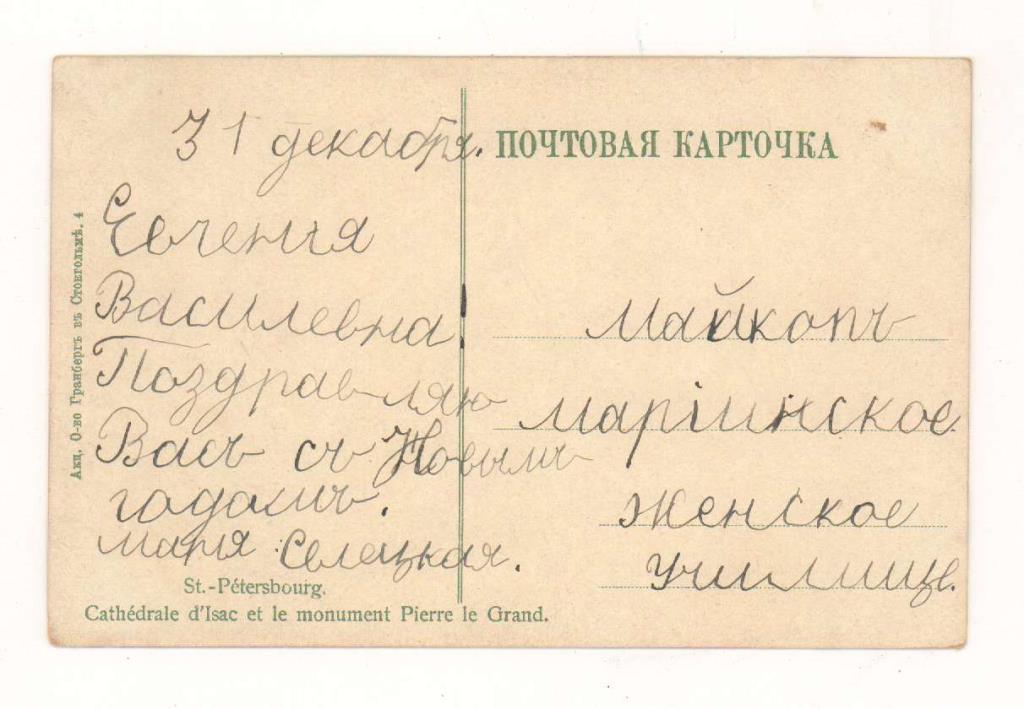 31 декабря.
Евгения
Василевна
Поздравляю
Васъ съ Новымъ
годомъ.
Маря Селецкая.
St.-Pétersbourg.
Cathédrale d'Isac et le monument Pierre le Grand.
Акц. О-во Гранбергъ въ Стокгольмѣ. 4
ПОЧТОВАЯ КАРТОЧКА
Майкопъ
Маріинское
Женское
Училище.